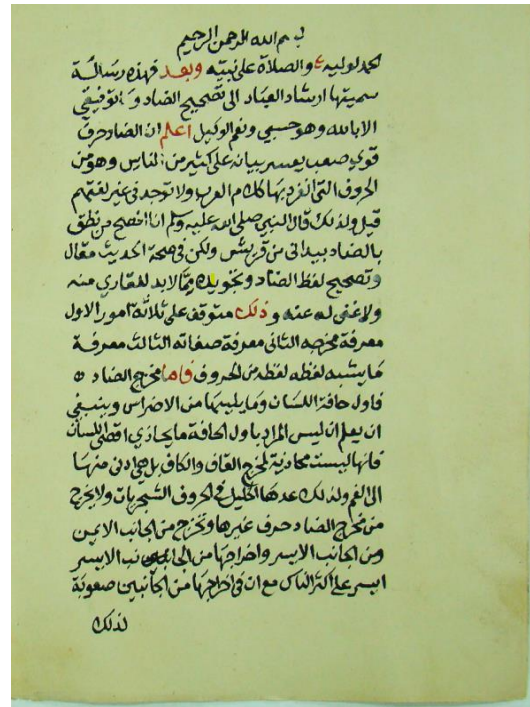 بسم الله الرحمن الرحيم
الحمد لوليه والصلاة على نبيه وبعد فهذه رسالة
سميتها ارشاد العباد الى تصحيح الضاد وما توفيقي
الا بالله وهو حسبي ونعم الوكيل اعلم ان الضاد حرف
قوي صعب يعسر بيانه على كثير من الناس وهو من
الحروف التي انفرد بها كلام العرب ولا توجد في غير لغتهم
قيل ولذلك قال النبي صلى الله عليه وسلم انا افصح من نطق
بالضاد بيد اني من قريش ولكن في صحة الحديث مقال
وتصحيح لفظ الضاد وتجويده مما لابد للقاري منه
ولا غنى له عنه وذلك متوقف على ثلاثة امور الاول
معرفة مخرجه الثاني معرفة صفاته الثالث معرفة
ما يشبه لفظه لفظه من الحروف فاما مخرج الضاد
فاول حافة اللسان وما يليها من الاضراس وينبغي
ان يعلم ان ليس المراد باول الحافة ما يحاذي اقصى اللسان
فانها ليست محاذية لمخرج القاف والكاف بل هي ادنى منها
الى الفم ولذلك عدها الخليل في الحروف الشجريات ولا يخرج
من مخرج الضاد حرف غيرها وتخرج من الجانب الايمن
ومن الجانب الايسر واخراجها من الجانب الايسر
ايسر على اكثر الناس مع ان في اخراجها من الجانبين صعوبة
لذلك